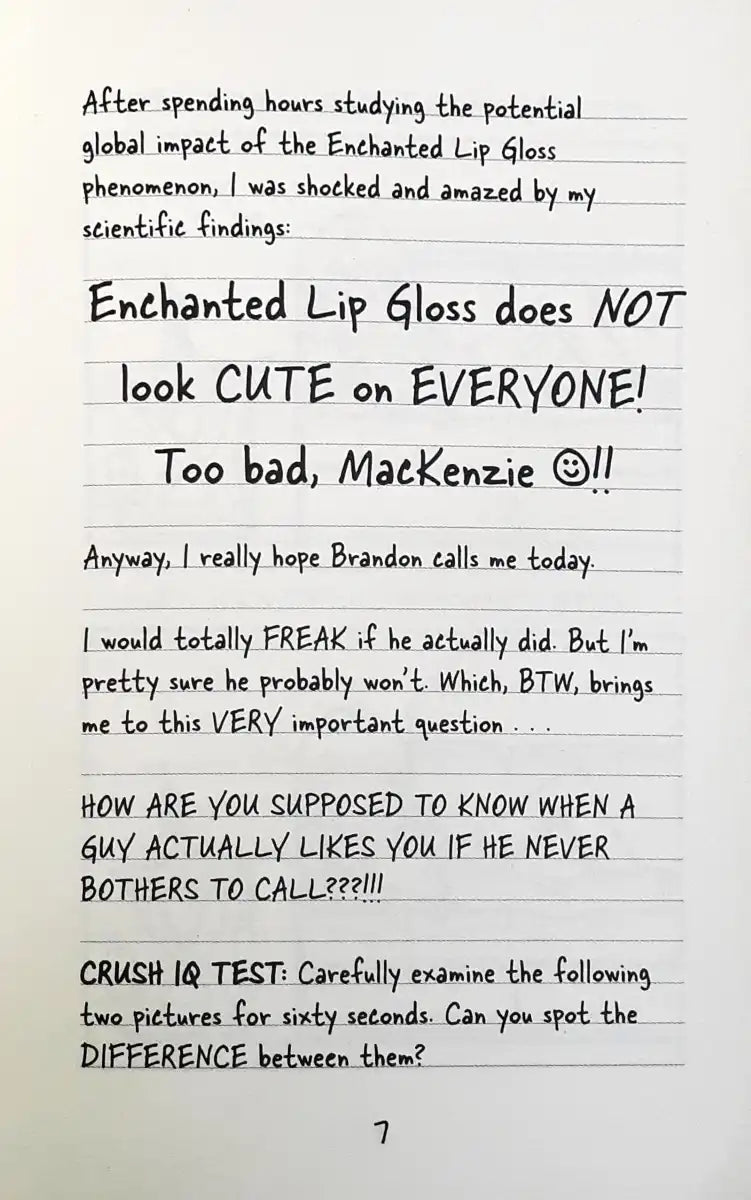 After spending hours studying the potential
global impact of the Enchanted Lip Gloss
phenomenon, I was shocked and amazed by my
scientific findings:
Enchanted Lip Gloss does NOT
look CUTE on EVERYONE!
Too bad, MacKenzie ☺!!
Anyway, I really hope Brandon calls me today.
I would totally FREAK if he actually did. But I'm
pretty sure he probably won't. Which, BTW, brings
me to this VERY important question . . .
HOW ARE YOU SUPPOSED TO KNOW WHEN A
GUY ACTUALLY LIKES YOU IF HE NEVER
BOTHERS TO CALL???!!!
CRUSH IQ TEST: Carefully examine the following
two pictures for sixty seconds. Can you spot the
DIFFERENCE between them?
7